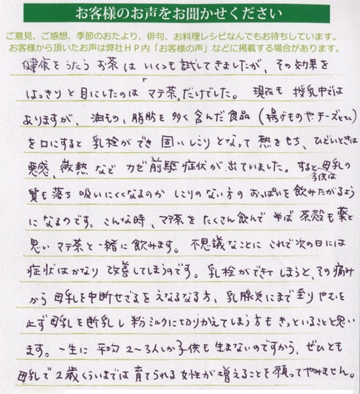 お客様のお声をお聞かせください
ご意見、ご感想、季節のおたより、俳句、お料理レシピなんでもお待ちしています。
お客様から頂いたお声は弊社HP内「お客様の声」などに掲載する場合があります。
健康をうたう お茶は いくつも試してきましたが、その効果を
はっきりと目にしたのは「マテ茶」だけでした。 現在も 授乳中では
ありますが、油もの、脂肪を多く含んだ食品（揚げものやチーズなど）
を口にすると 乳栓ができ 固いしこりとなって 熱をもち、ひどいときは
悪感、微熱など カゼ前駆症状が出ていました。すると母乳の
子供は
質も落ち 吸いにくくなるのか しこりのない方の おっぱいを飲みたがるよう
になるのです。こんな時、マテ茶を たくさん飲んで 半ば 茶殻も薬と
思い マテ茶と一緒に飲みます。 不思議なことに これで次の日には
症状はかなり 改善してしまうのです。乳栓ができてしまうと、その痛み
から 母乳を中断せざるをえなくなる方、乳腺炎にまで至り やむを
止ず 母乳を断乳し 粉ミルクに切りかえてしまう方も きっといることと思い
ます。一生に 平均 2～3人しか子供も生まないのですから、ぜひとも
母乳で2歳くらいまでは 育てられる女性が増えることを願ってやみません。